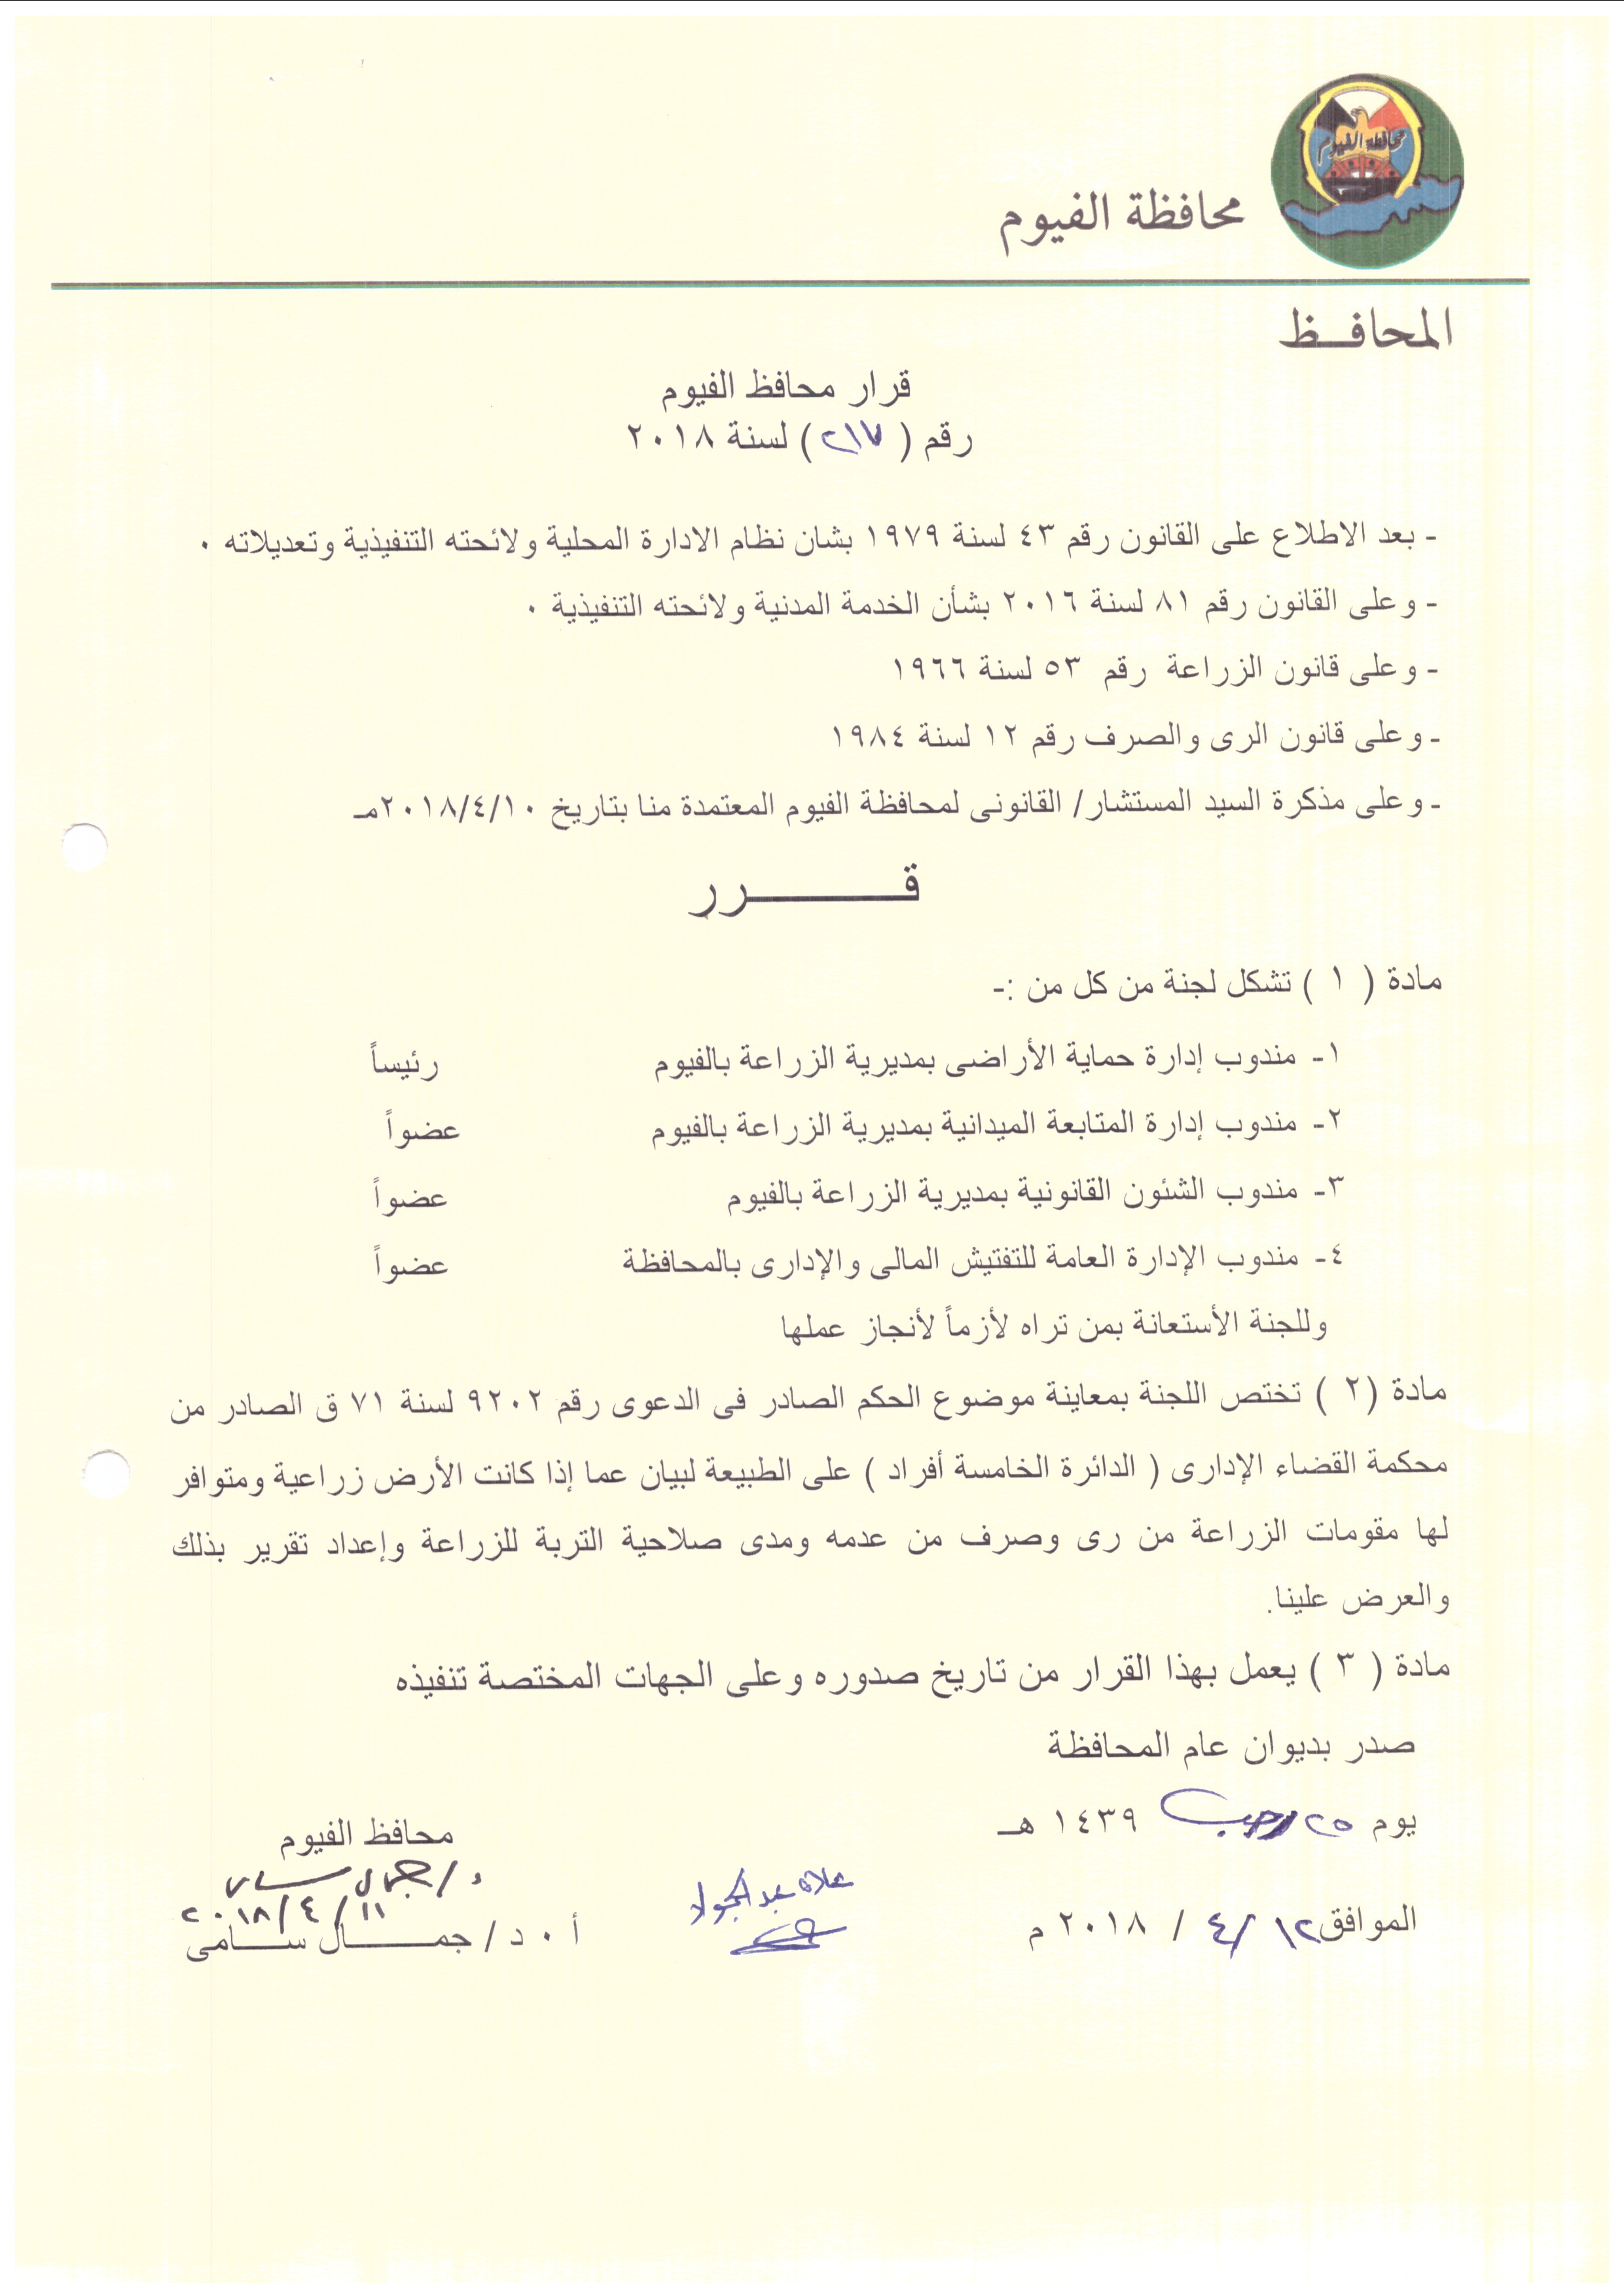 محافظة الفيوم
محافظة الفيوم
المحافــظ
قرار محافظ الفيوم
رقم ( ٢١٧ ) لسنة ٢٠١٨
- بعد الاطلاع على القانون رقم ٤٣ لسنة ١٩٧٩ بشان نظام الادارة المحلية ولائحته التنفيذية وتعديلاته ٠
- وعلى القانون رقم ٨١ لسنة ٢٠١٦ بشأن الخدمة المدنية ولائحته التنفيذية ٠
- وعلى قانون الزراعة رقم ٥٣ لسنة ١٩٦٦
- وعلى قانون الرى والصرف رقم ١٢ لسنة ١٩٨٤
- وعلى مذكرة السيد المستشار/ القانونى لمحافظة الفيوم المعتمدة منا بتاريخ ٢٠١٨/٤/١٠مـ
قــــــــرر
مادة ( ١ ) تشكل لجنة من كل من :-
١- مندوب إدارة حماية الأراضى بمديرية الزراعة بالفيوم رئيساً
٢- مندوب إدارة المتابعة الميدانية بمديرية الزراعة بالفيوم عضواً
٣- مندوب الشئون القانونية بمديرية الزراعة بالفيوم عضواً
٤- مندوب الإدارة العامة للتفتيش المالى والإدارى بالمحافظة عضواً
وللجنة الأستعانة بمن تراه لأزماً لأنجاز عملها
مادة (٢ ) تختص اللجنة بمعاينة موضوع الحكم الصادر فى الدعوى رقم ٩٢٠٢ لسنة ٧١ ق الصادر من
محكمة القضاء الإدارى ( الدائرة الخامسة أفراد ) على الطبيعة لبيان عما إذا كانت الأرض زراعية ومتوافر
لها مقومات الزراعة من رى وصرف من عدمه ومدى صلاحية التربة للزراعة وإعداد تقرير بذلك
والعرض علينا.
مادة ( ٣ ) يعمل بهذا القرار من تاريخ صدوره وعلى الجهات المختصة تنفيذه
صدر بديوان عام المحافظة
يوم ٢٥ رجب ١٤٣٩ هـ
الموافق ١٢ / ٤ / ٢٠١٨ م
علاء عبد الجواد
محافظ الفيوم
د/ جمال سامى
٢٠١٨/٤/١١
أ ٠ د / جمـــــال ســـامى